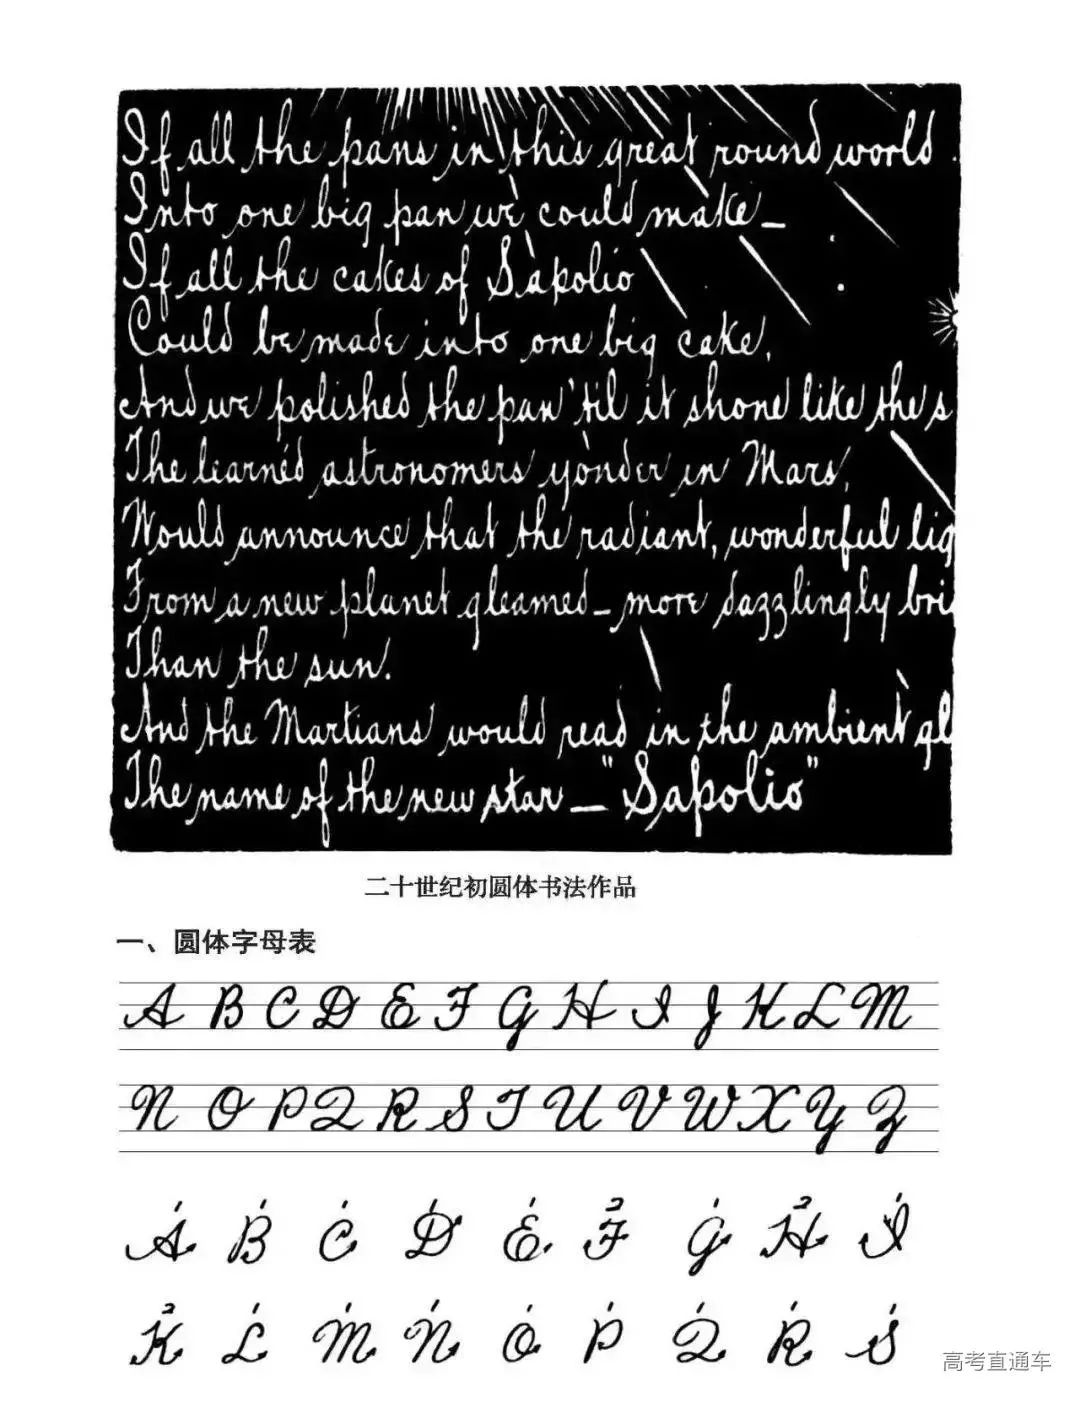 If all the pans in this great round world
Into one big pan we could make—
If all the cakes of Sapolio
Could be made into one big cake,
And we polished the pan 'til it shone like the s
The learned astronomers yonder in Mars,
Would announce that the radiant, wonderful lig
From a new planet gleamed—more dazzlingly bri
Than the sun.
And the Martians would read in the ambient gl
The name of the new star—"Sapolio"
二十世纪初圆体书法作品
一、圆体字母表
A B C D E F G H I J K L M
N O P Q R S T U V W X Y Z
A B C D E F G H I
K L M N O P Q R S
高考直通车